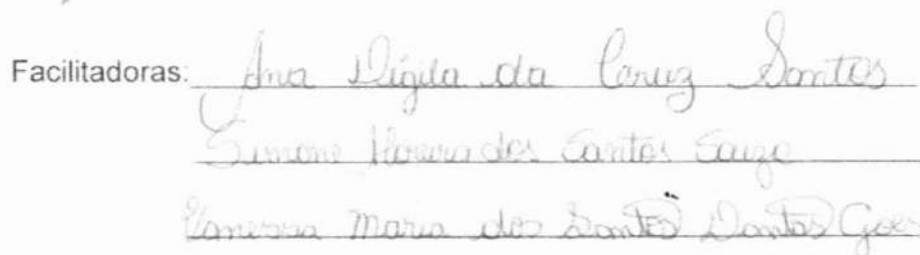 Facilitadoras: Ana Lígila da Cruz Santos
Simone Moura dos Santos Souza
Vanessa Maria dos Santos Dantas Goes